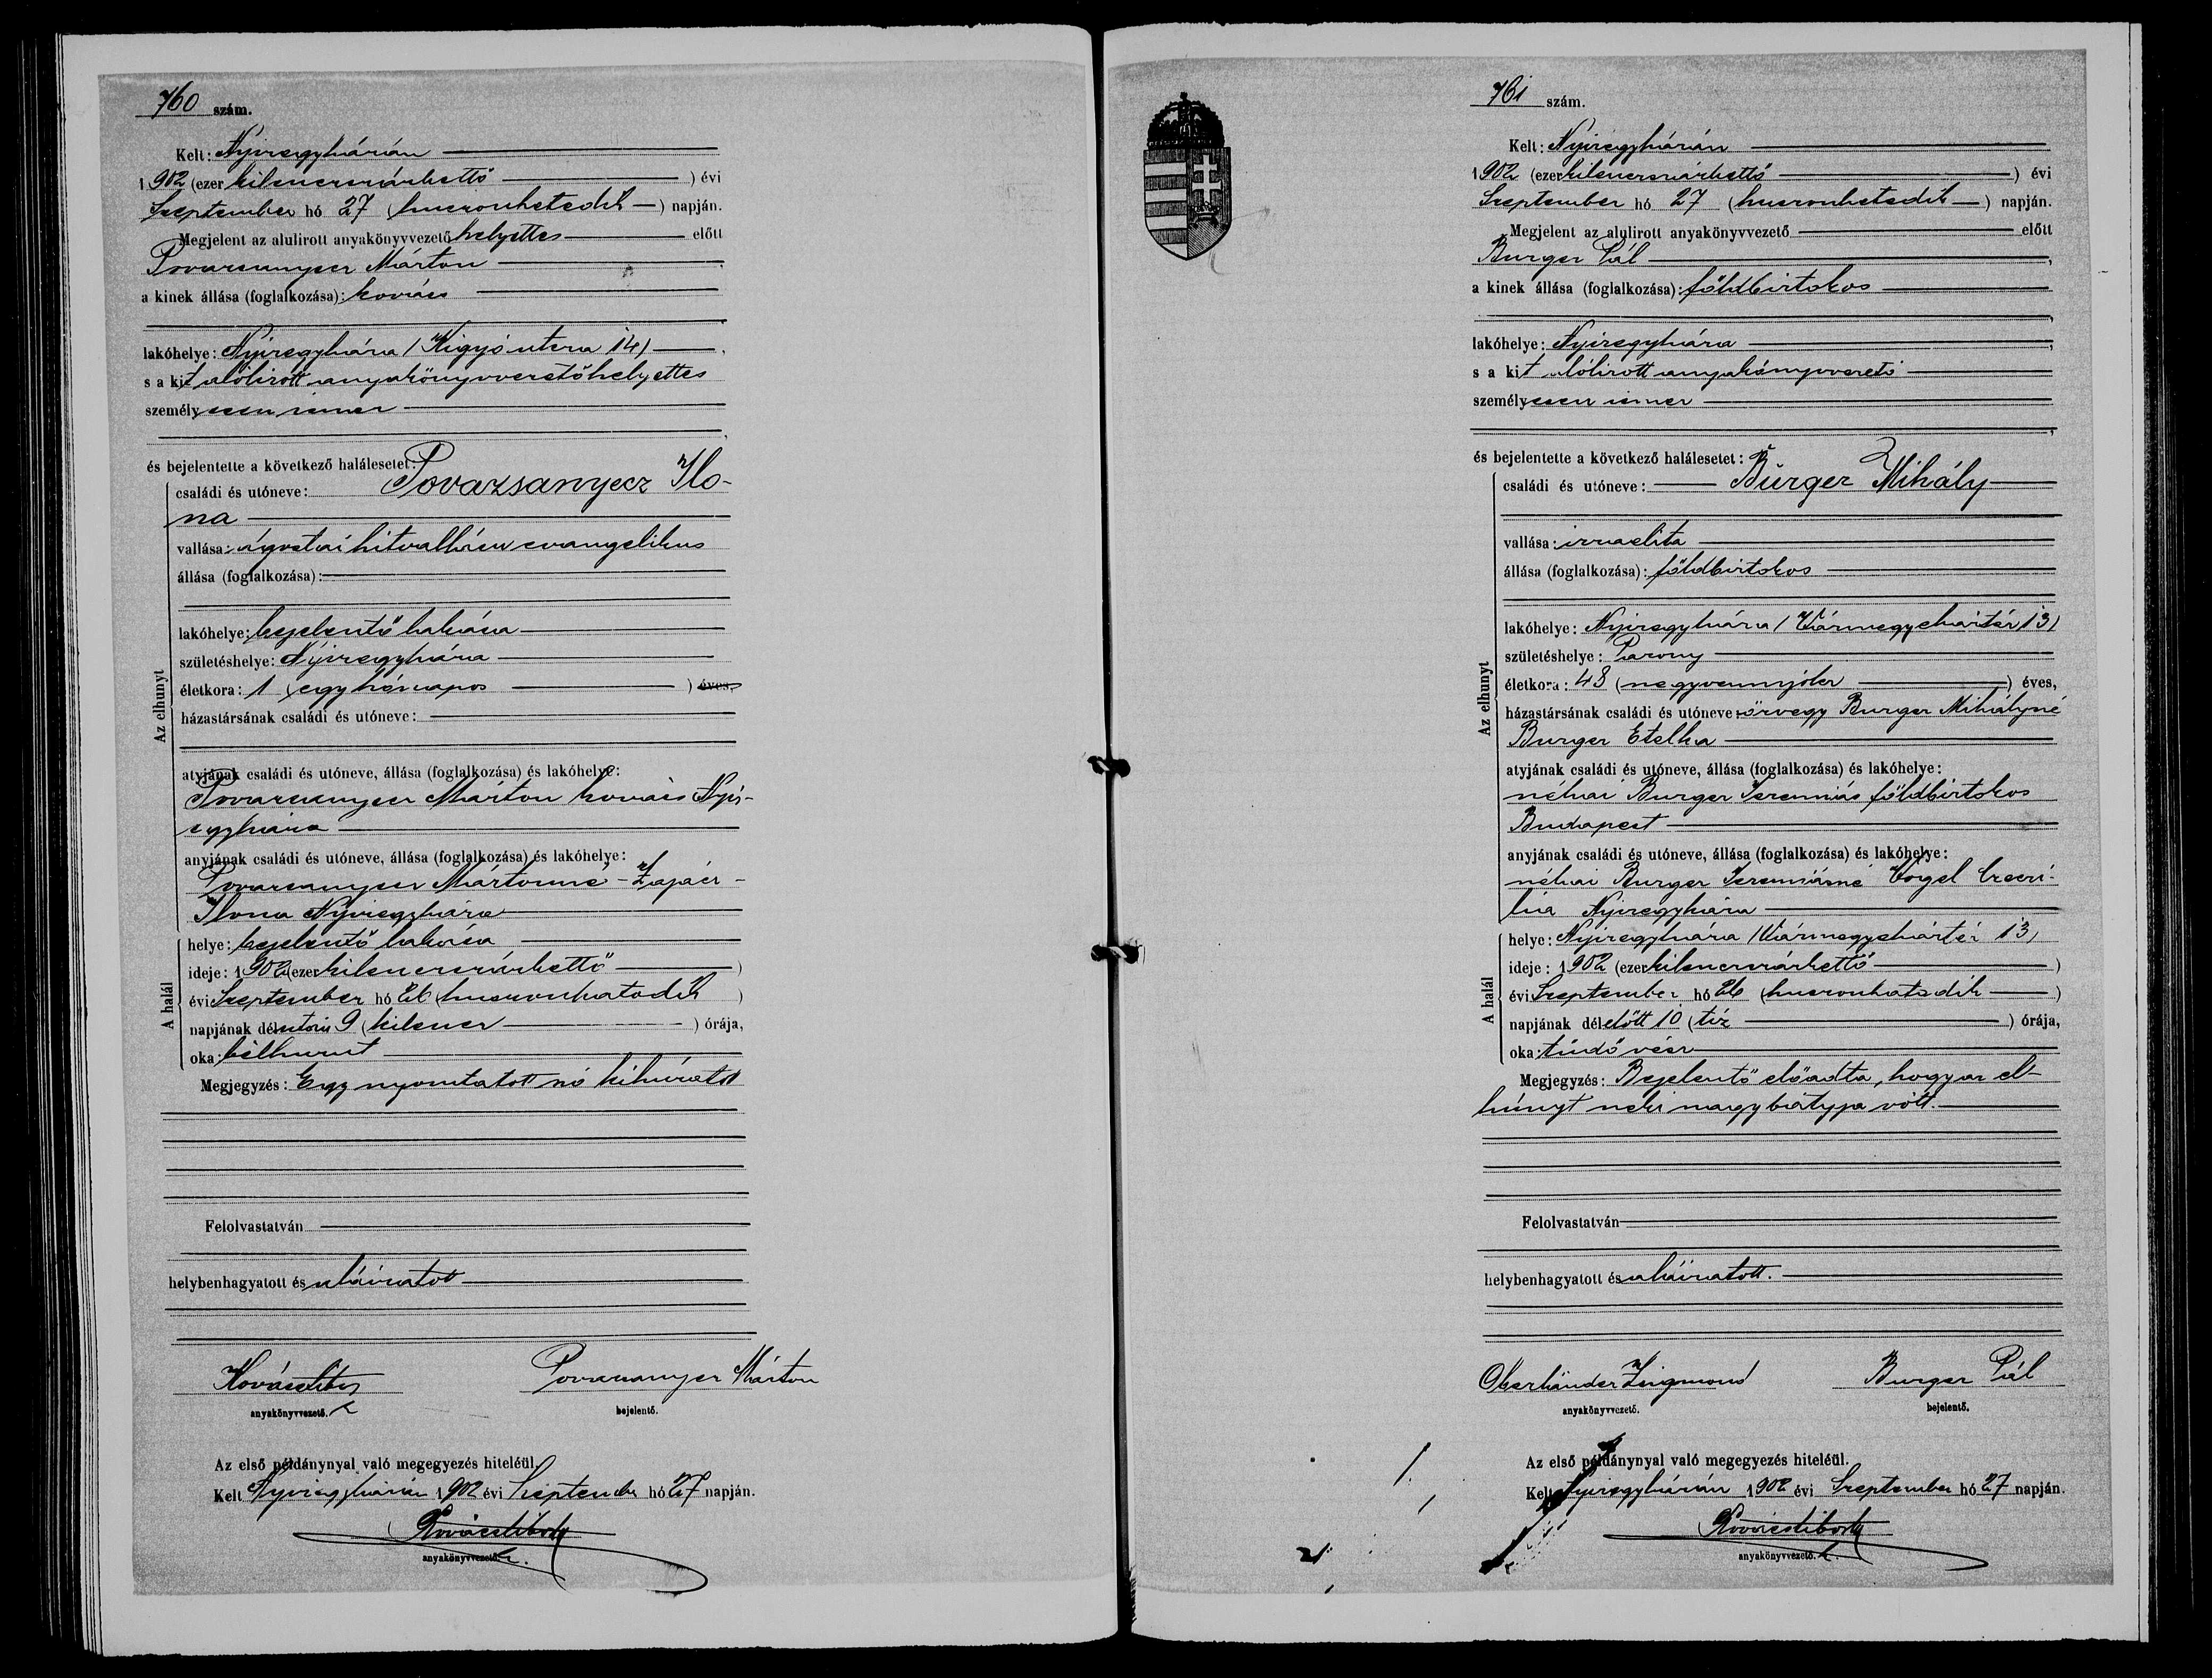 760 szám.
Kelt: Nyiregyházán
1902 (ezer kilencszázkettő) évi
Szeptember hó 27 (huszonhetedik) napján.
Megjelent az alulirott anyakönyvvezető helyettes előtt
Povazsanyecz Márton,
a kinek állása (foglalkozása): kovács
lakóhelye: Nyiregyháza (Kigyó utcza 14),
s a kit alólirott anyakönyvvezetőhelyettes
személyesen ismer
és bejelentette a következő halálesetet:
családi és utóneve: Povazsanyecz Ilo-
na
vallása: ágostai hitvallásu evangelikus
állása (foglalkozása):
lakóhelye: bejelentő lakása
születéshelye: Nyiregyháza
életkora: 1 (egy hónapos) éves,
házastársának családi és utóneve:
atyjának családi és utóneve, állása (foglalkozása) és lakóhelye:
Povazsanyecz Márton kovács Nyir-
egyháza
anyjának családi és utóneve, állása (foglalkozása) és lakóhelye:
Povazsanyecz Mártonné - -
Ilona Nyiregyháza
Az elhunyt
helye: bejelentő lakása
ideje: 1902 (ezer kilencszázkettő)
évi Szeptember hó 26 (huszonhatodik)
napjának délután 9 (kilencz) órája,
oka: bélhurut
A halál
Megjegyzés: Egy nyomtatott szó kihúzatott
Felolvastatván
helybenhagyatott és aláiratott
Povazsanyecz Márton
anyakönyvvezető. h
bejelentő.
Az első példánynyal való megegyezés hiteléül.
Kelt Nyiregyházán 1902 évi Szeptember hó 27 napján.
anyakönyvvezető. h.
761 szám.
Kelt: Nyiregyházán
1902 (ezer kilencszázkettő) évi
Szeptember hó 27 (huszonhetedik) napján.
Megjelent az alulirott anyakönyvvezető előtt
Burger Pál,
a kinek állása (foglalkozása): földbirtokos
lakóhelye: Nyiregyháza,
s a kit alólirott anyakönyvvezető
személyesen ismer
és bejelentette a következő halálesetet:
családi és utóneve: Burger Mihály
vallása: izraelita
állása (foglalkozása): földbirtokos
lakóhelye: Nyiregyháza (Vármegyeháztér 13)
születéshelye: Pazony
életkora: 48 (negyvennyolcz) éves,
házastársának családi és utóneve: özvegy Burger Mihályné
Burger Etelka
atyjának családi és utóneve, állása (foglalkozása) és lakóhelye:
néhai Burger Jeremiás földbirtokos
Budapest
anyjának családi és utóneve, állása (foglalkozása) és lakóhelye:
néhai Burger Jeremiásné Vogel Czeczi-
lia Nyiregyháza
Az elhunyt
helye: Nyiregyháza (Vármegyeháztér 13)
ideje: 1902 (ezer kilencszázkettő)
évi Szeptember hó 26 (huszonhatodik)
napjának délelőtt 10 (tíz) órája,
oka: tüdővész
A halál
Megjegyzés: Bejelentő előadta, hogy az el-
húnyt neki nagybátyja vólt.
Felolvastatván
helybenhagyatott és aláiratott.
Oberländer Zsigmond Burger Pál
anyakönyvvezető. bejelentő.
Az első példánynyal való megegyezés hiteléül.
Kelt Nyiregyházán 1902 évi Szeptember hó 27 napján.
anyakönyvvezető. h.